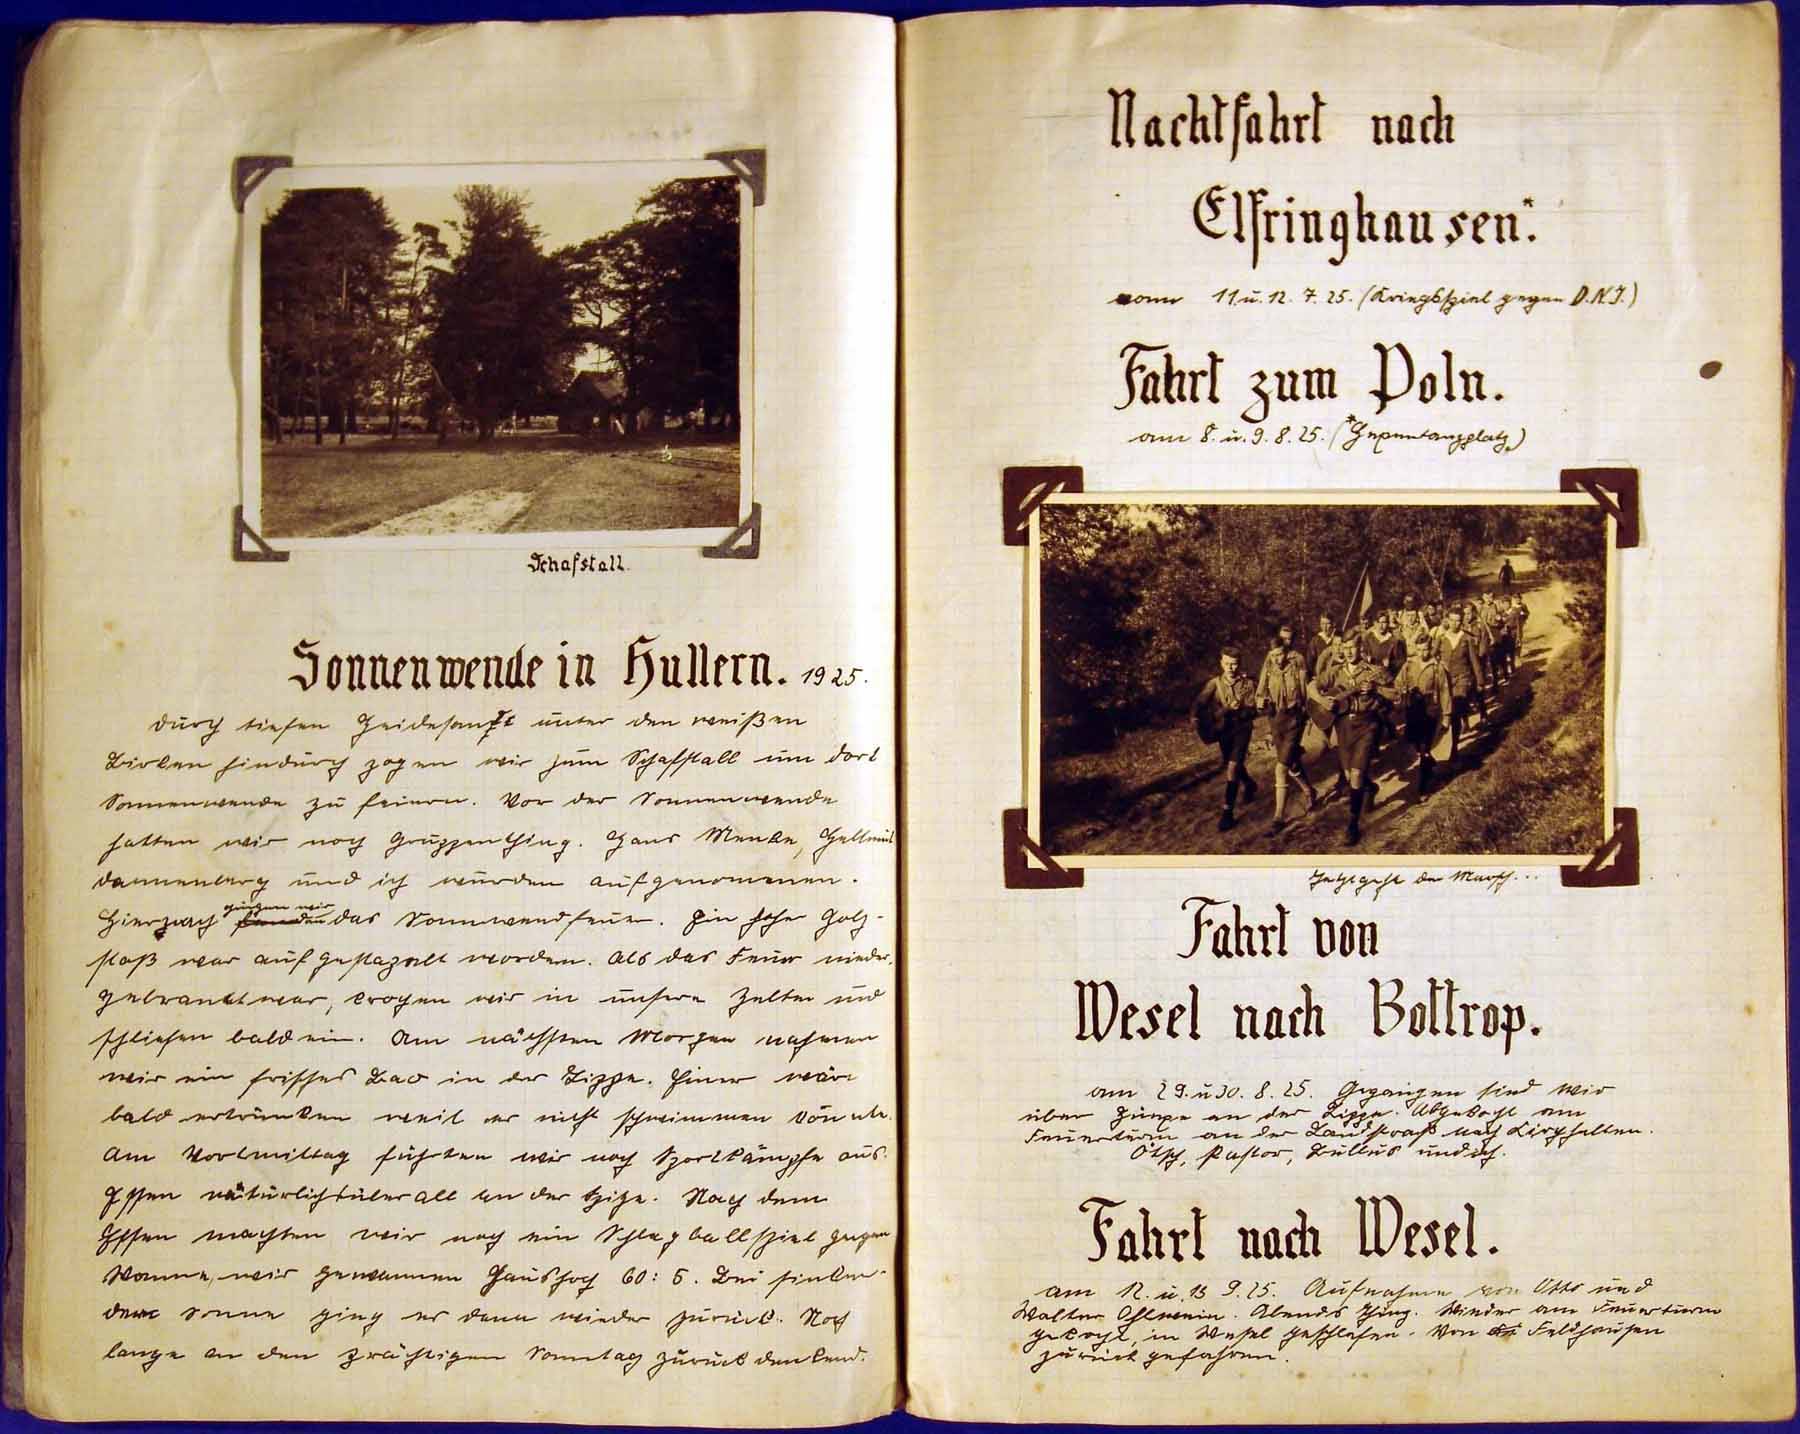 Schafstall.
Sonnenwende in Hullern. 1925.
Durch tiefen Heidesand unter den weißen
Birken hindurch zogen wir zum Schafstall um dort
Sonnenwende zu feiern. Vor der Sonnenwende
hatten wir noch Gruppenthing. Hans Menke, Hellmut
Dannenberg und ich wurden aufgenommen.
Hiernach gingen wir das Sonnwendfeuer. Ein hoher Holz-
stoß war aufgestapelt worden. Als das Feuer nieder-
gebrannt war, krochen wir in unsere Zelte und
schliefen bald ein. Am nächsten Morgen nahmen
wir ein frisches Bad in der Lippe. Einer wäre
bald ertrunken weil er nicht schwimmen konnte.
Am Vortmittag führten wir noch Sportkämpfe aus.
Essen natürlich überall an der Spitze. Nach dem
Essen machten wir noch ein Schlagballspiel gegen
Wanne, wir gewannen haushoch 60:5. Bei sinken-
der Sonne ging es dann wieder zurück. Noch
lange an den prächtigen Sonntag zurückdenkend.
Nachtfahrt nach
Elfringhausen.*
vom 11. u. 12. 7. 25. (Kriegsspiel gegen D.N.J.)
Fahrt zum Poln.
am 8. u. 9. 8. 25. (*Hexentanzplatz)
Jetzt geht der Marsch...
Fahrt von
Wesel nach Bottrop.
am 29. u 30. 8. 25. Gegangen sind wir
über Hünxe an der Lippe. Abgekocht am
Feuerturm an der Landstraße nach Kirchhellen.
Otsch, Pastor, Bullus und ich.
Fahrt nach Wesel.
am 12. u. 13 9. 25. Aufnahme von Otto und
Walter Ohlwein. Abends Thing. Wieder am Feuerturm
gekocht, in Wesel geschlafen. Von Feldhausen
zurück gefahren.